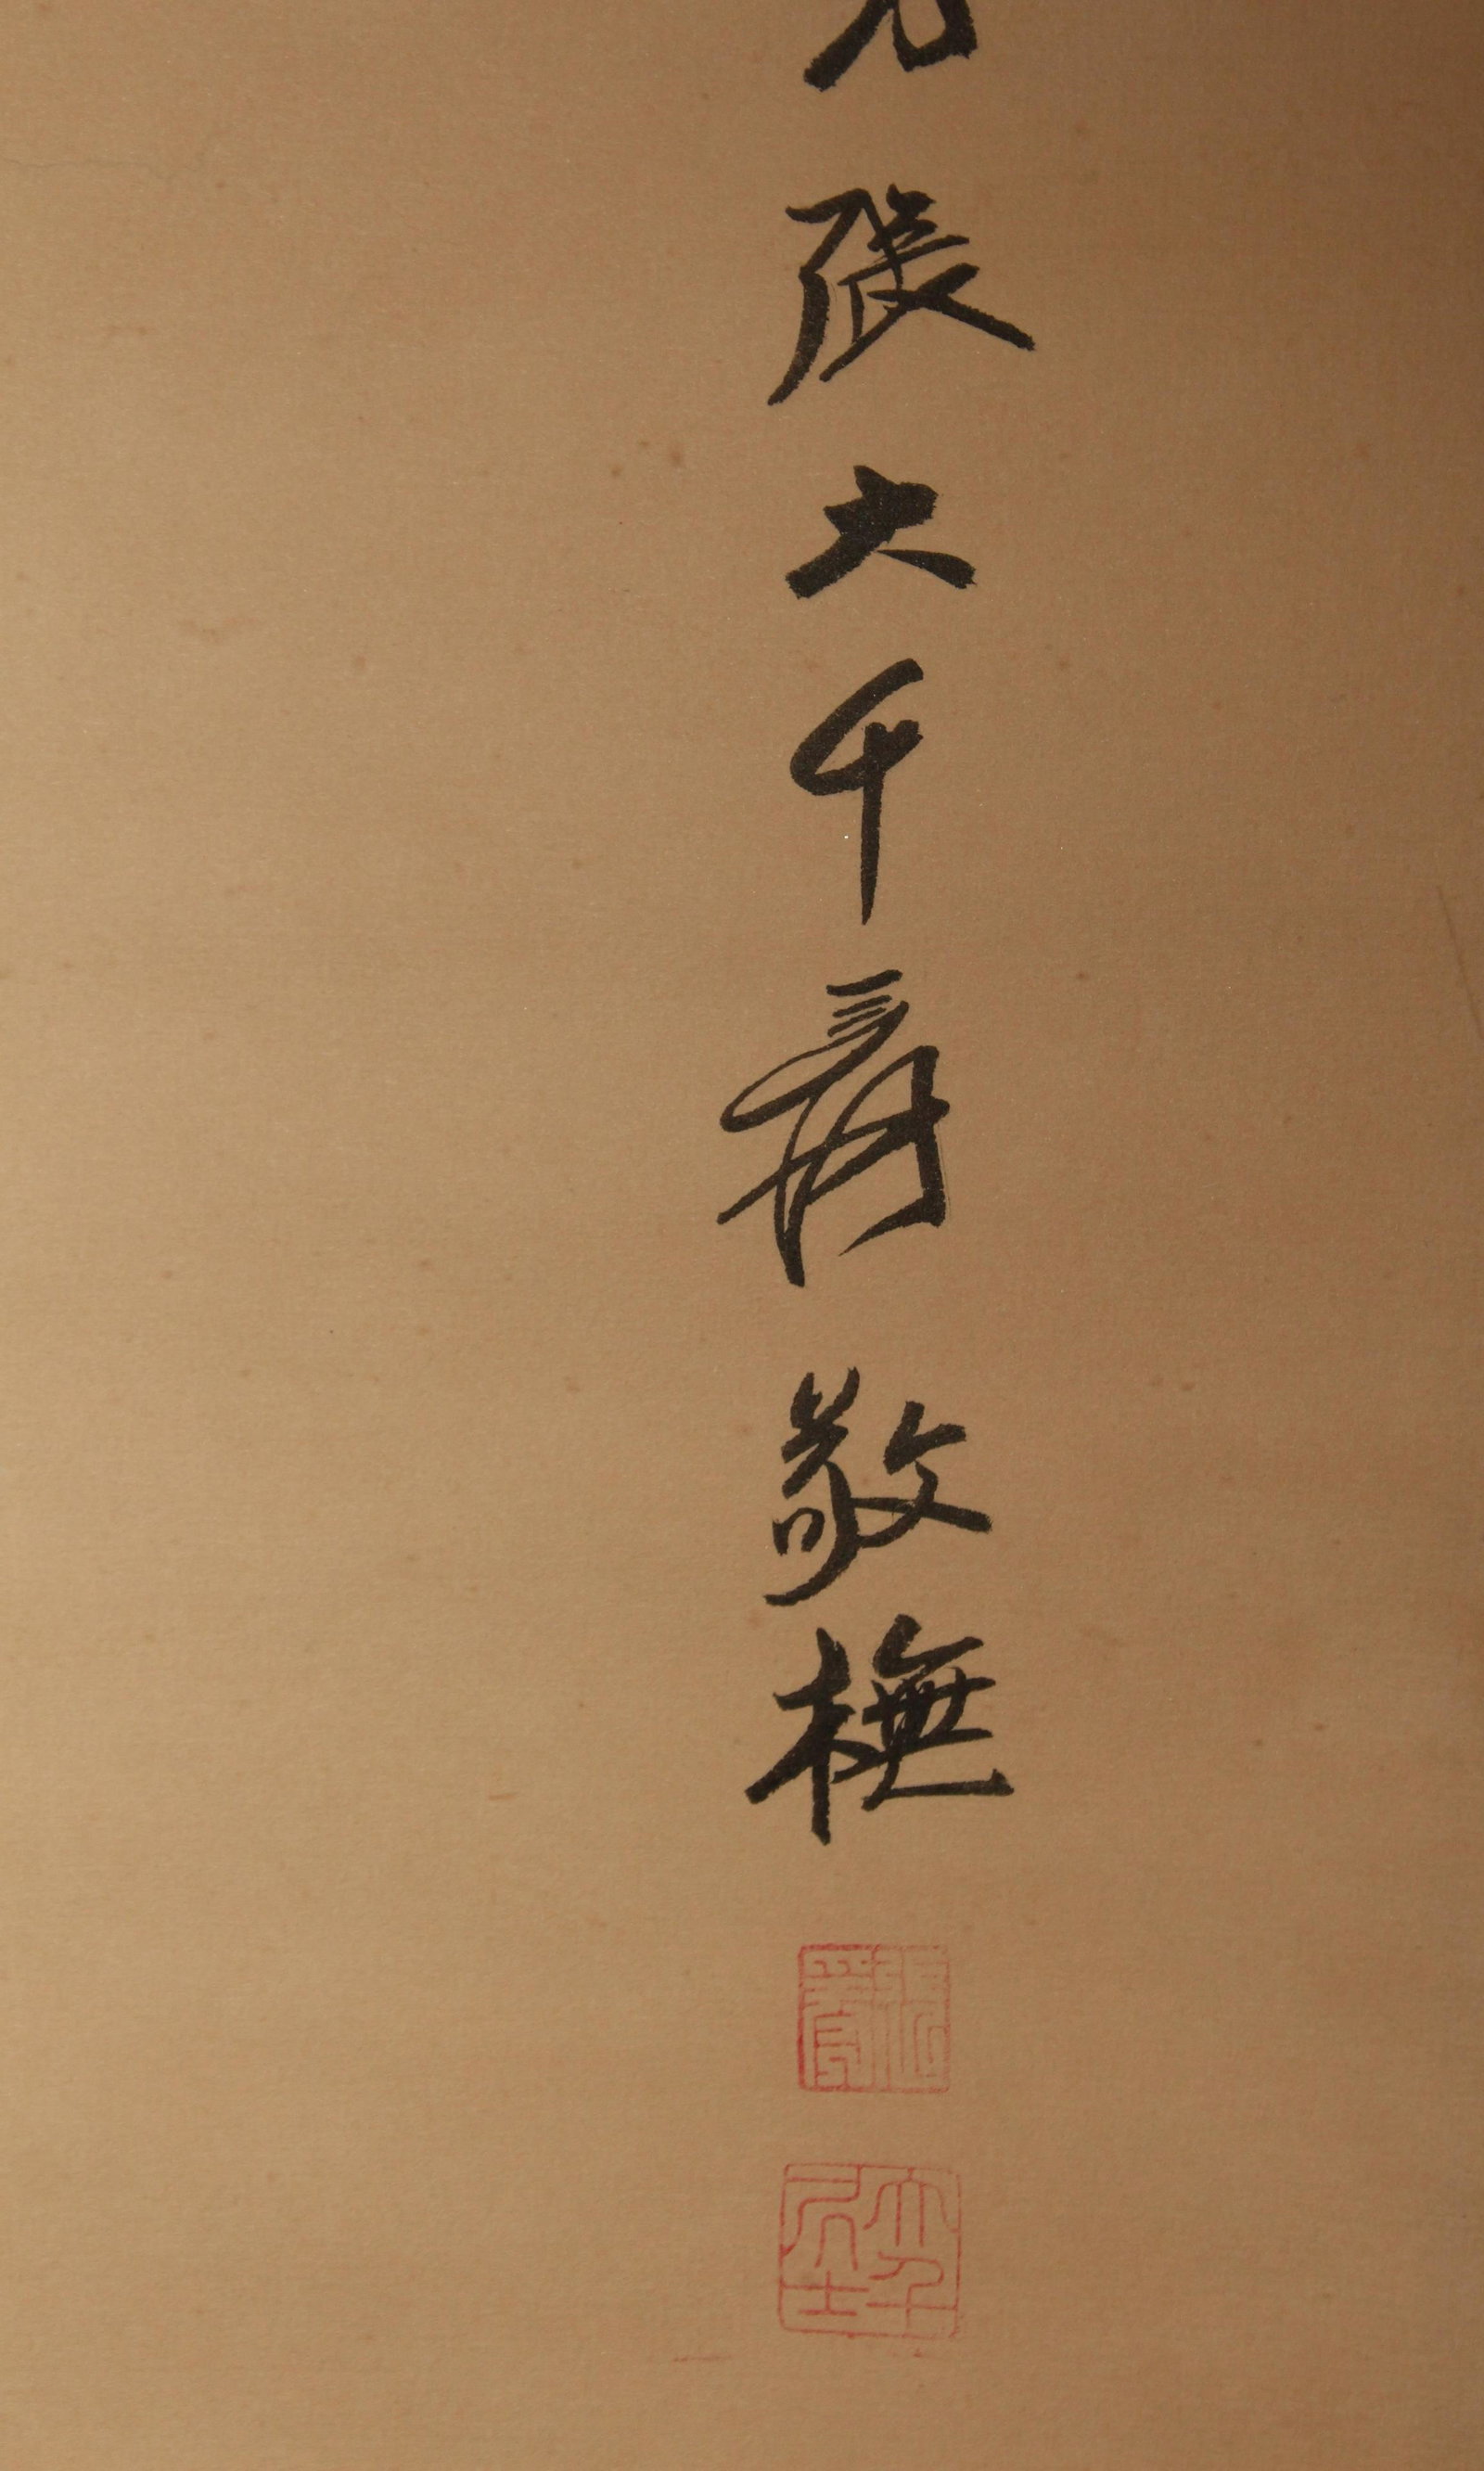 張大千爰敬橅
張爰
大千居士